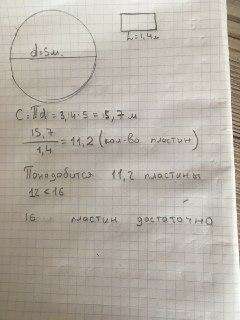 d=5м.
L=1,4м
C=πd=3,14·5=15,7 м
15,7/1,4=11,2 (кол-во пластин)
Понадобится 11,2 пластины
12<16
16 пластин достаточно